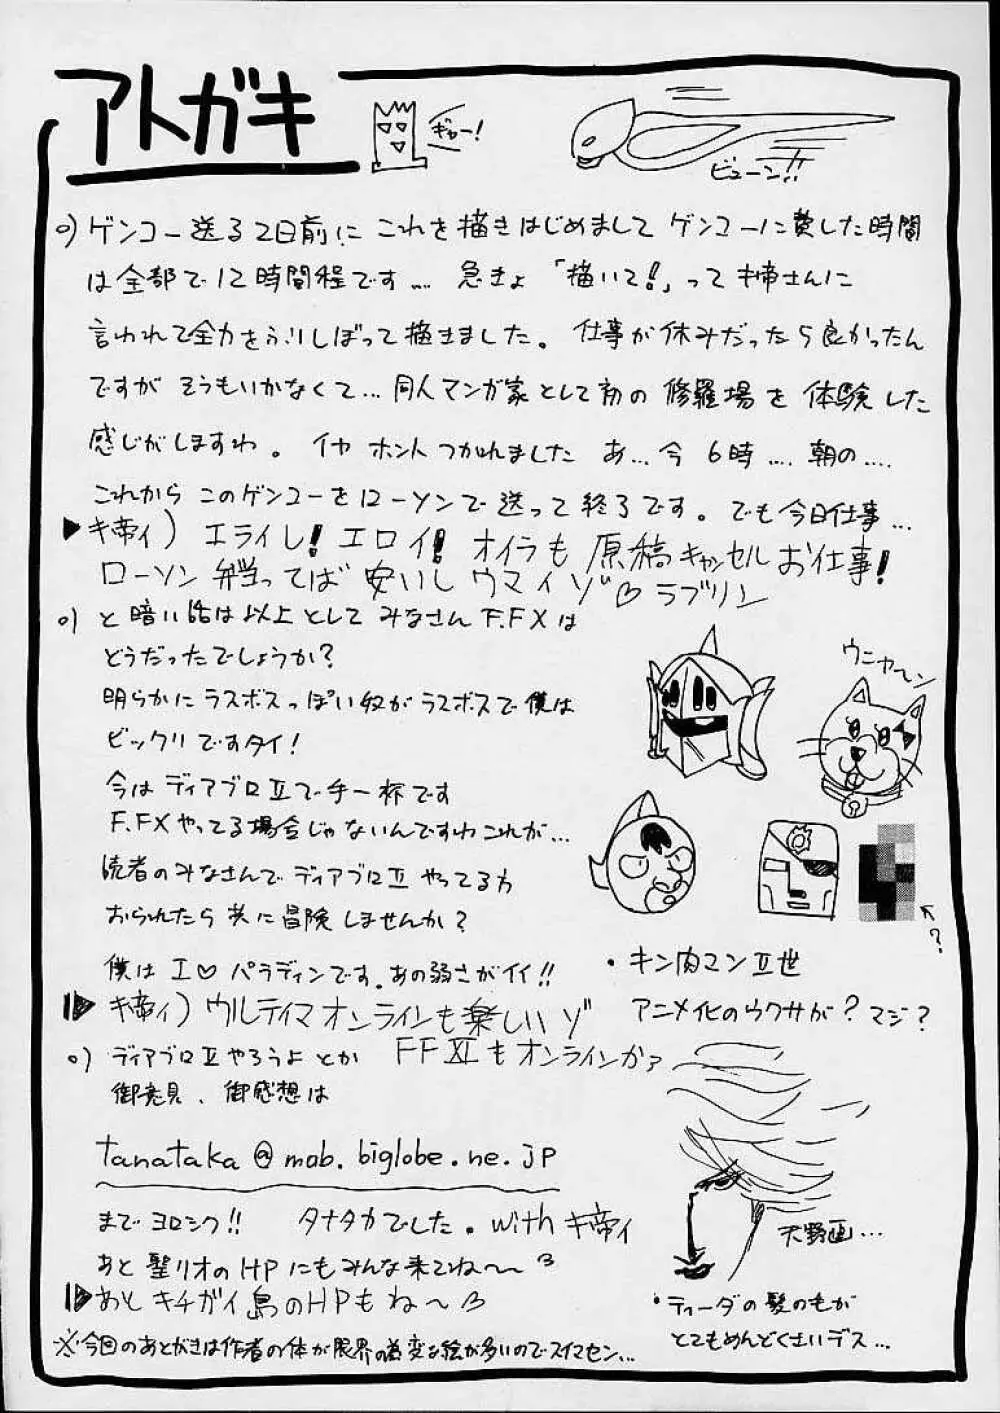 アトガキ
ギャー!
ビューン!!
o) ゲンコー送る2日前にこれを描きはじめましてゲンコーに費した時間
は全部で12時間程です… 急きょ「描いて!」ってキ帝さんに
言われて全力をふりしぼって描きました。仕事が休みだったら良かったん
ですがそうもいかなくて…同人マンガ家として初の修羅場を体験した
感じがしますわ。イヤホントつかれました あ…今6時…. 朝の….
これからこのゲンコーをローソンで送って終了です。でも今日仕事…
▶キ帝ィ) エライし!エロイ!オイラも原稿キャンセルお仕事!
ローソン弁当ってば安いしウマイゾ♡ラブリン
o) と暗い話は以上としてみなさんF.FXは
どうだったでしょうか?
明らかにラスボスっぽい奴がラスボスで僕は
ビックリですタイ!
今はディアブロⅡで手一杯です
F.FXやってる場合じゃないんですわこれが…
読者のみなさんでディアブロⅡやってる方
おられたら共に冒険しませんか?
僕はエ♡パラディンです。あの弱さがイイ!!
▶キ帝ィ) ウルティマオンラインも楽しいゾ
o) ディアブロⅡやろうよとか FFXIもオンラインかァ
御意見、御感想は
tanataka@mob.biglobe.ne.jp
までヨロシク!! タナタカでした。withキ帝ィ
あと聖リオのHPにもみんな来てね〜〜
▶あとキチガイ島のHPもね〜
※今回のあとがきは作者の体が限界の為変な絵が多いのでスイマセン…
ウニャ〜ン
?
・キン肉マンⅡ世
アニメ化のウワサが?マジ?
天野画…
・ティーダの髪の毛が
とてもめんどくさいデス…